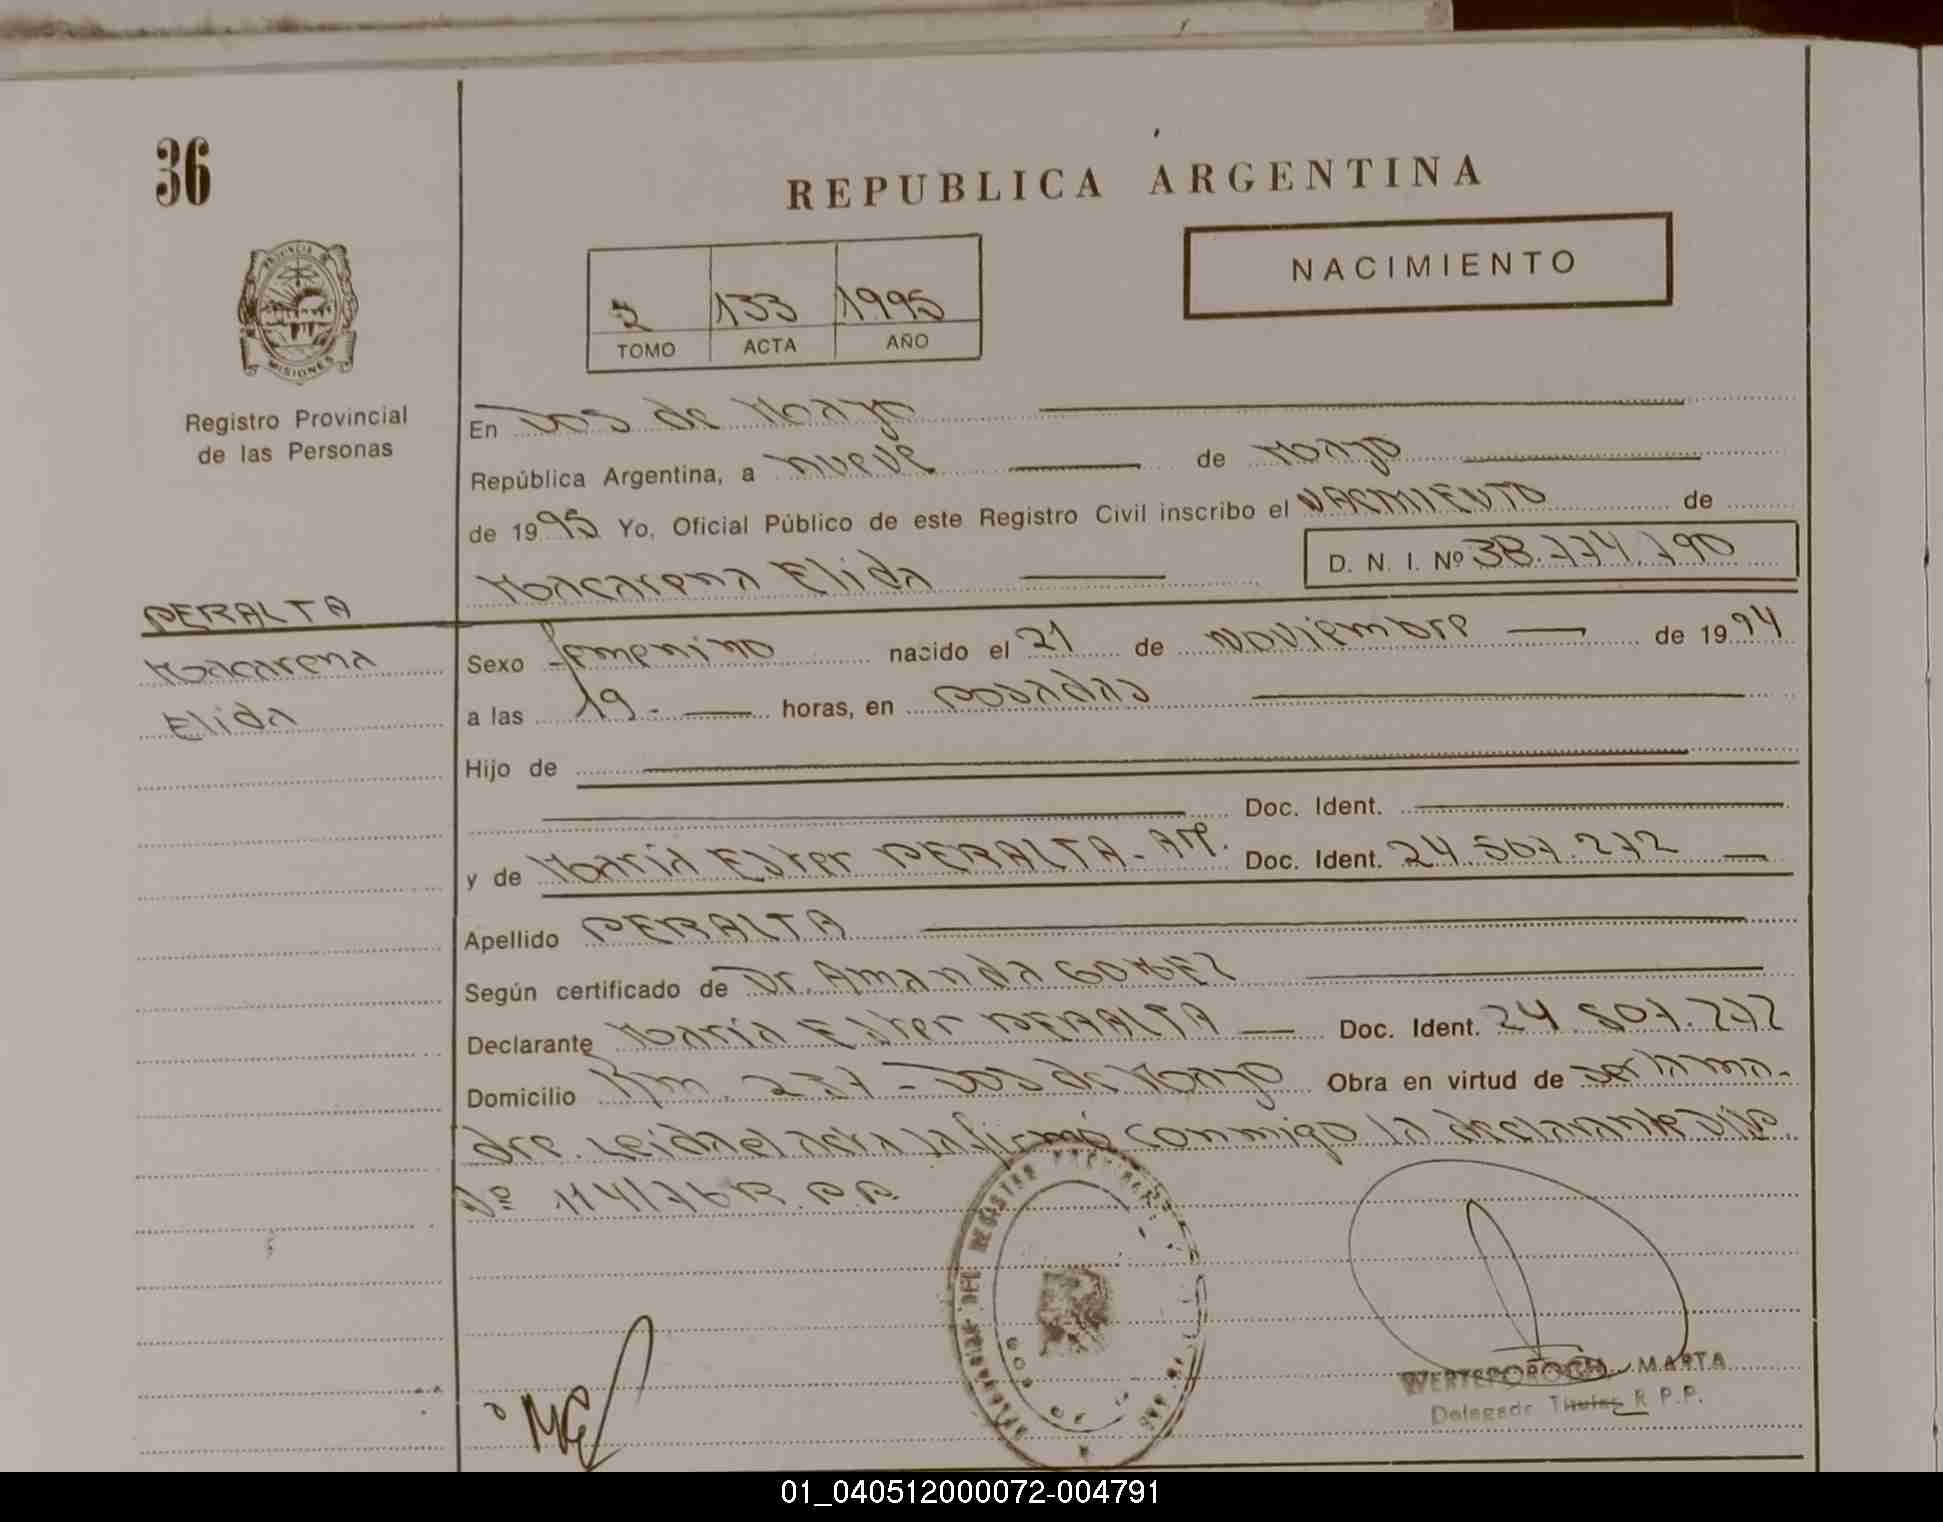 36
REPUBLICA ARGENTINA
NACIMIENTO
PROVINCIA DE
MISIONES
2 133 1995
TOMO ACTA AÑO
Registro Provincial
de las Personas
En Dos de Mayo
República Argentina, a nueve de Mayo
de 1995 Yo, Oficial Público de este Registro Civil inscribo el NACIMIENTO de
Macarena Elida D. N. I. Nº 38.774.790
PERALTA
Macarena
Elida
Sexo femenino nacido el 21 de Noviembre de 1994
a las 19.- horas, en Posadas
Hijo de
Doc. Ident.
y de María Ester PERALTA- Doc. Ident. 24.507.272
Apellido PERALTA
Según certificado de Dr. Amanda GOMEZ
Declarante María Ester PERALTA Doc. Ident. 24.507.272
Domicilio Km. 237 - Dos de Mayo Obra en virtud de ser la ma-
dre. Leida el acta la firmó conmigo la declarante
Nº 114/76 R.P.P.
DELEGACION DEL REGISTRO
WERTEPOROCH, MARTA
Delegado Titular R.P.P.
01_040512000072-004791